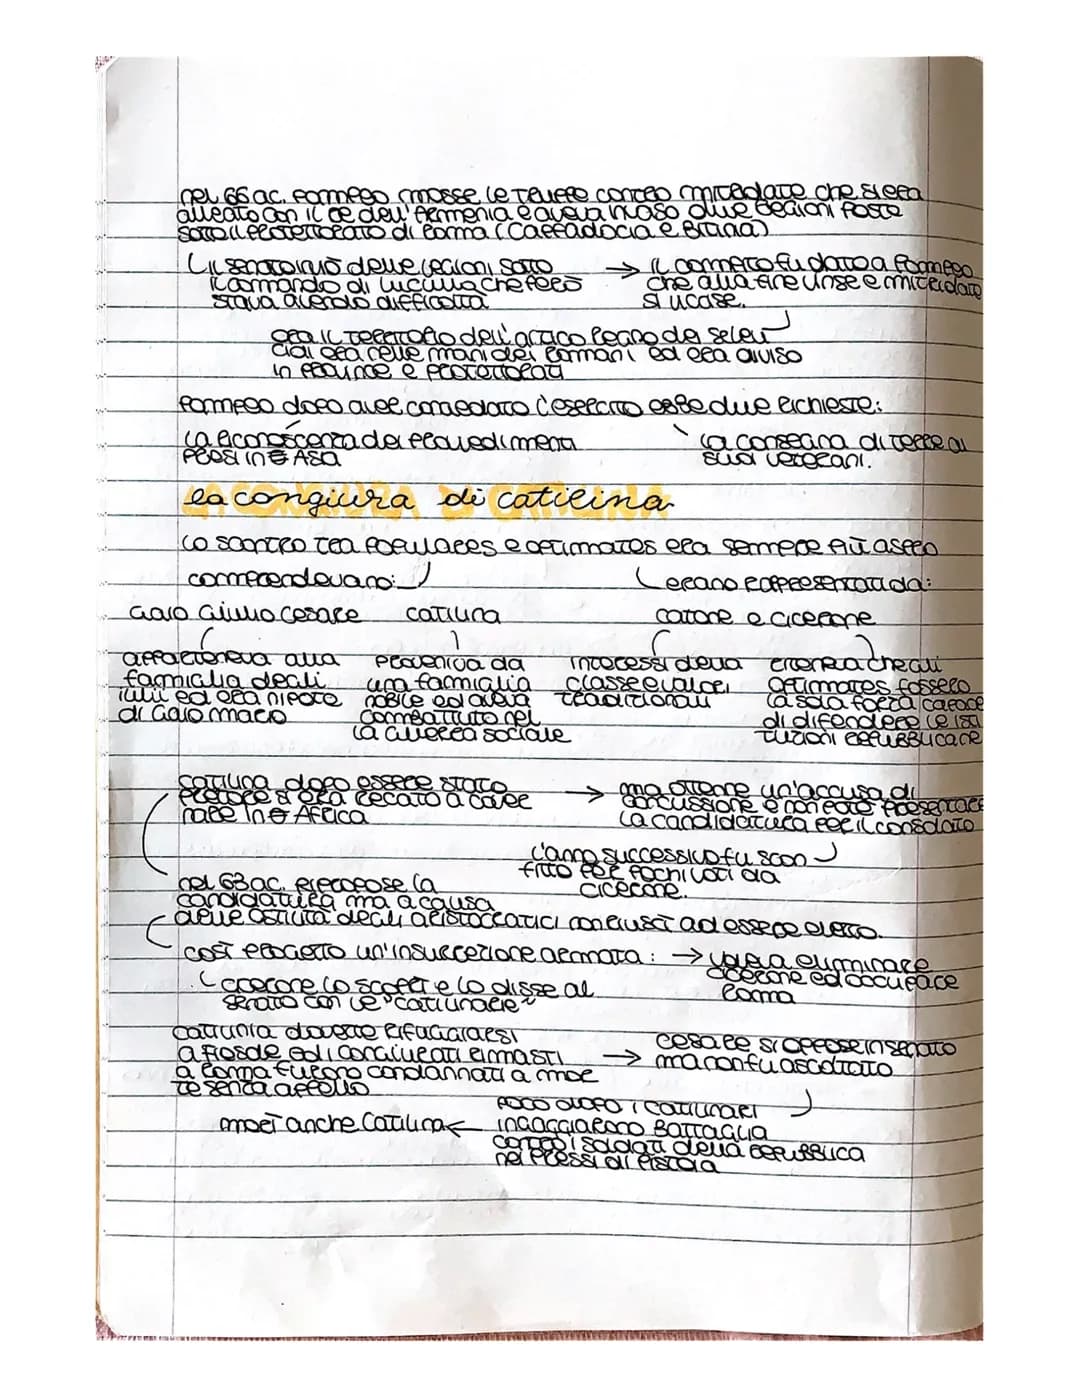 nel 66 ac. Pompeo mosse le truppe contro mitridate che si era
alleato con il re dell'Armenia e aveva invaso due regioni poste
sotto il protettorato di Roma (Cappadocia e Bitinia)
il senato inviò delle legioni sotto
il comando di Lucullo che però
stava avendo difficoltà
→ il compito fu dato a Pompeo
che alla fine vinse e mitridate
si uccise.
ora il territorio dell'antico Regno dei Seleu
cidi era nelle mani dei Romani ed era diviso
in province e protettorati
Pompeo dopo aver congedato l'esercito ebbe due richieste:
la riconoscenza dei provvedimenti
presi in Asia
la consegna di terre ai
suoi veterani.
la congiura di catilina
lo scontro tra Populares e optimates era sempre più aspro
comprendevano:
erano rappresentati da:
Gaio Giulio Cesare catilina
catone e cicerone
apparteneva alla
famiglia degli
iulii ed era nipote
di Gaio mario
proveniva da
una famiglia
nobile ed aveva
combattuto nel
la guerra sociale
interessi della
classe e valori
tradizionali
riteneva che gli
optimates fossero
la sola forza capace
di difendere le isti
tuzioni repubblicane
catilina dopo essere stato
pretore si era recato a gover
nare in Africa
→ ma ottenne un'accusa di
concussione e non poté presentare
la candidatura per il consolato
l'anno successivo fu scon
fitto per pochi voti da
cicerone.
nel 63 ac. ripropose la
candidatura ma a causa
delle ostilità degli aristocratici non riuscì ad essere eletto.
così progettò un'insurrezione armata: → voleva eliminare
cicerone ed occupare
Roma
cicerone lo scoprì e lo disse al
senato con le "catilinarie"
catilinia dovette rifuggiarsi
a fiesole e gli congiurati rimasti
a Roma furono condannati a mor
te senza appello
→ cesare si oppose in senato
ma non fu ascoltato
poco dopo i catilinari
ingaggiarono battaglia
contro i soldati della repubblica
nei pressi di Pistoia
morì anche Catilina ←